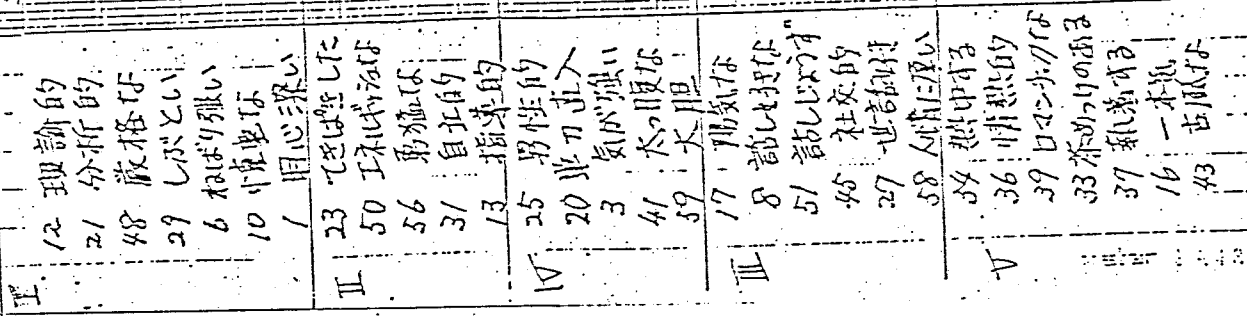 I
12 理論的
21 分析的
48 厳格な
29 しぶとい
6 ねばり強い
10 慎重な
1 用心深い
II
23 てきぱきした
50 エネルギッシュな
56 勇猛な
31 自立的
13 指導的
IV
25 男性的
20
3 気が強い
41 太っ腹な
59 大胆
III
17 陽気な
8 話し好きな
51 話しじょうず
45 社交的
27 世話好き
58 人情に厚い
V
54 熱中する
36 情熱的
39 ロマンチックな
33 茶めっけのある
37
16 一本気
43